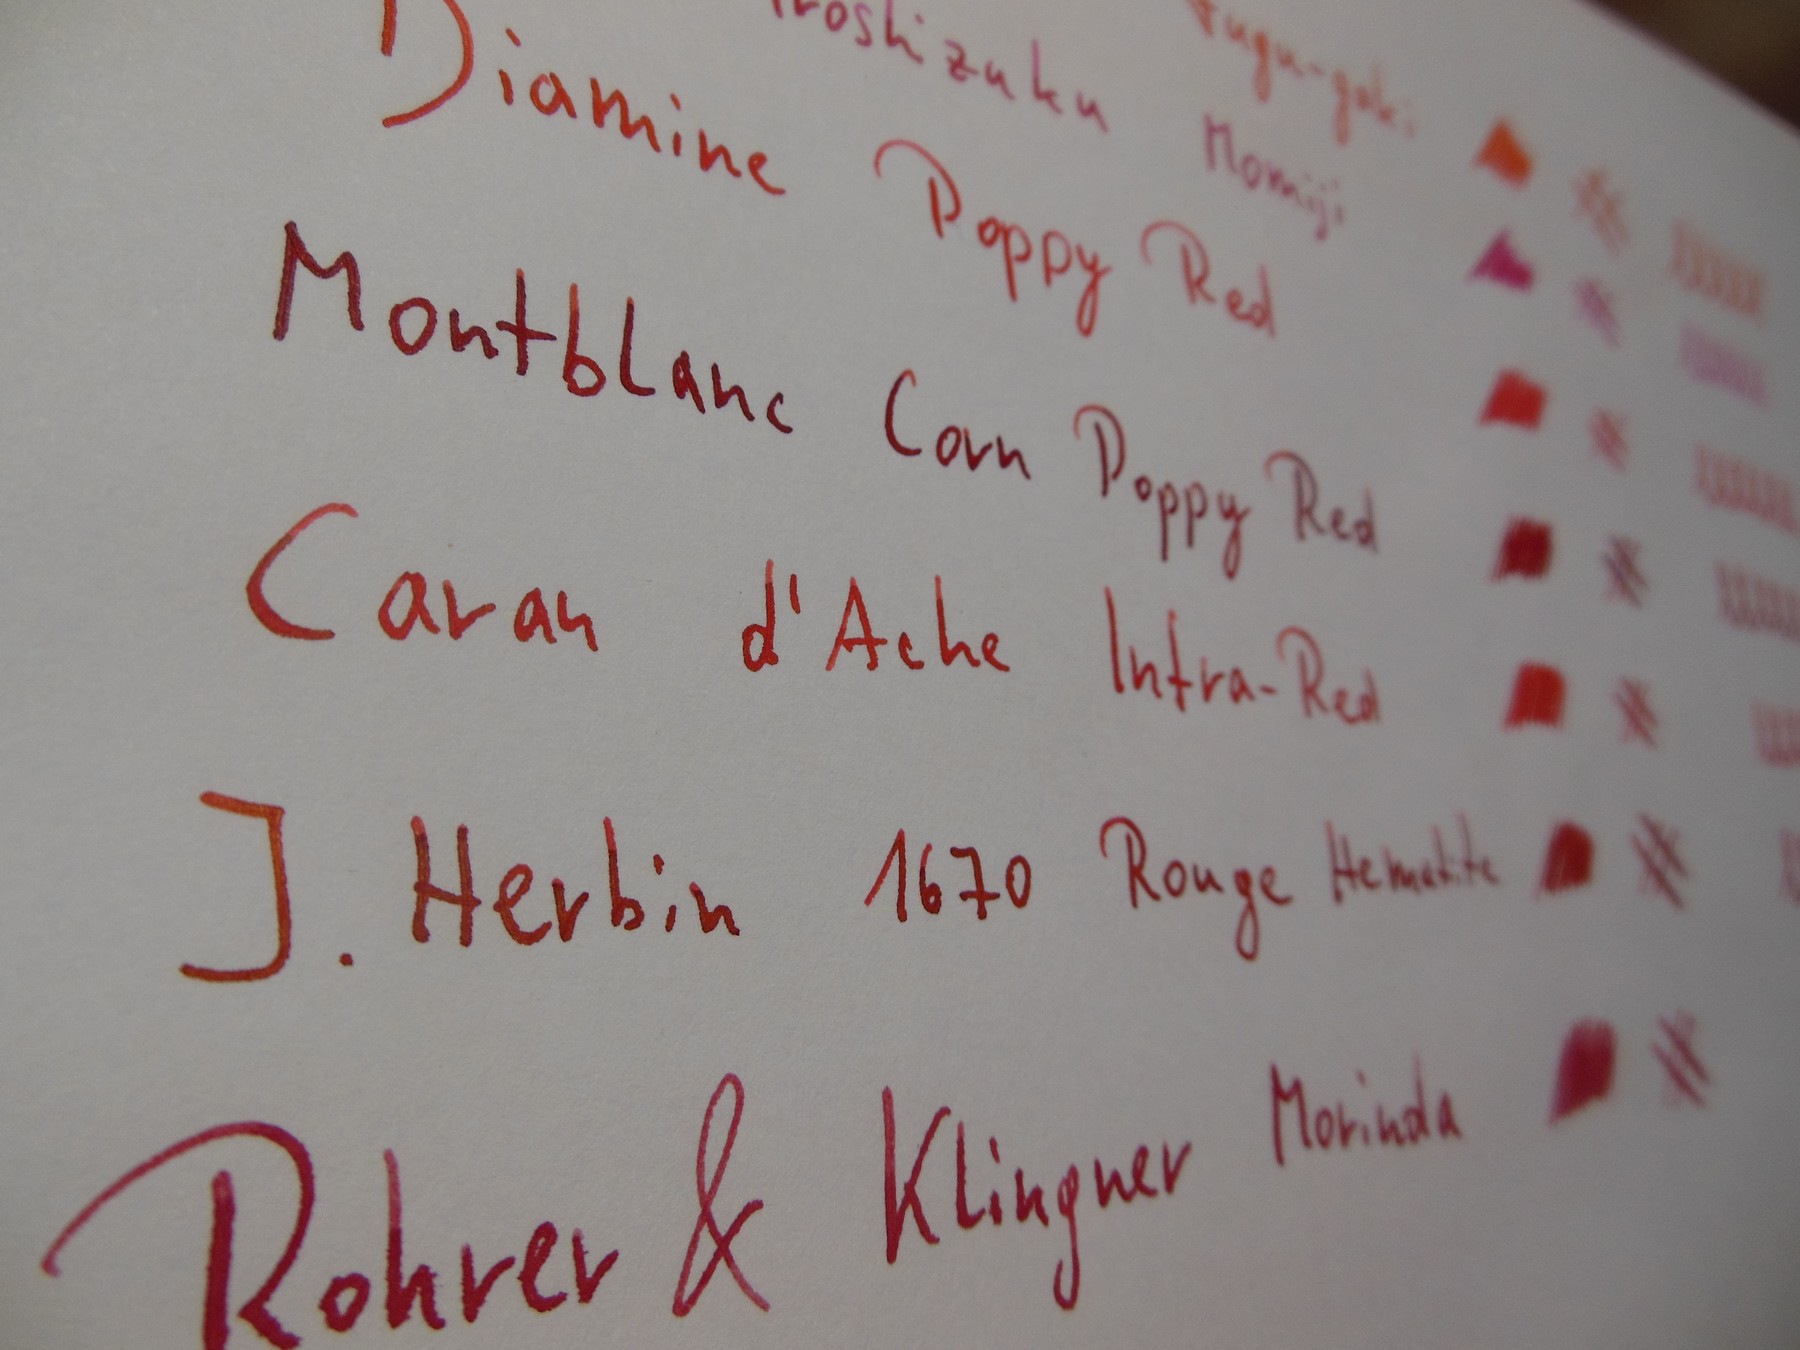 Fuyu-gaki
Iroshizuku Momiji
Diamine Poppy Red
Montblanc Corn Poppy Red
Caran d'Ache Infra-Red
J. Herbin 1670 Rouge Hematite
Rohrer & Klingner Morinda